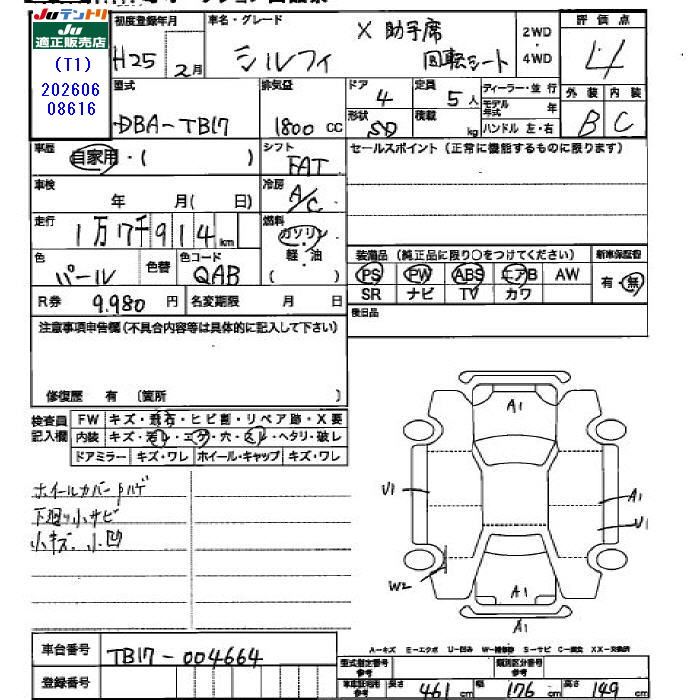 Juテントリ
Ju適正販売店
(T1)
202606
08616
初度登録年月
H25 2月
車名・グレード
シルフィ
X 助手席
回転シート
2WD
・
4WD
評価点
4
外装 内装
B C
型式
DBA-TB17
排気量
1800 CC
ドア
4
形状
SD
定員
5人
積載
kg
ディーラー・並行
モデル年式 年
ハンドル 左・右
車歴
自家用・( )
シフト
FAT
セールスポイント(正常に機能するものに限ります)
車検
年 月( 日)
冷房
A/C
走行
1万7千914km
燃料
ガソリン
軽・油
色
パール
色替
色コード
QAB
装備品(純正品に限り○をつけてください)
PS PW ABS エアB AW
SR ナビ TV カワ
新車保証書
有・無
R券 9.980円
名変期限 月 日
後日品
注意事項申告欄(不具合内容等は具体的に記入して下さい)
修復歴 有 〔箇所 〕
検査員
記入欄
FW キズ・飛石・ヒビ割・リペア跡・X要
内装 キズ・汚レ・コゲ・穴・スレ・ヘタリ・破レ
ドアミラー キズ・ワレ ホイール・キャップ キズ・ワレ
ホイールカバーハゲ
下廻り小サビ
小キズ、小凹
A1
U1
A1
U1
W2
A1
A1
A-キズ E-エクボ U-凹み W-補修跡 S-サビ C-腐食 XX-交換済
車台番号
TB17-004664
登録番号
型式指定番号
参考
類別区分番号
参考
車車証有用
参考
長さ 461 cm
幅 176 cm
高さ 149 cm